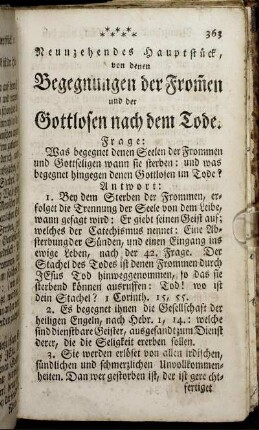 363
Neunzehendes Hauptstück,
von denen
Begegnungen der From̄en
und der
Gottlosen nach dem Tode.
Frage:
Was begegnet denen Seelen der Frommen
und Gottseligen wann sie sterben: und was
begegnet hingegen denen Gottlosen im Tode?
Antwort:
1. Bey dem Sterben der Frommen, er-
folget die Trennung der Seele von dem Leibe,
wann gesagt wird: Er giebt seinen Geist auf;
welches der Catechismus nennet: Eine Ab-
sterbung der Sünden, und einen Eingang ins
ewige Leben, nach der 42. Frage. Der
Stachel des Todes ist denen Frommen durch
JEsus Tod hinweggenommen, so daß sie
sterbend können ausruffen: Tod! wo ist
dein Stachel? 1 Corinth. 15, 55.
2. Es begegnet ihnen die Gesellschaft der
heiligen Engeln, nach Hebr. 1, 14.: welche
sind dienstbare Geister, ausgesandt zum Dienst
derer, die die Seligkeit ererben sollen.
3. Sie werden erlöset von allen irdischen,
sündlichen und schmerzlichen Unvollkommen-
heiten. Dan wer gestorben ist, der ist gerecht-
fertiget